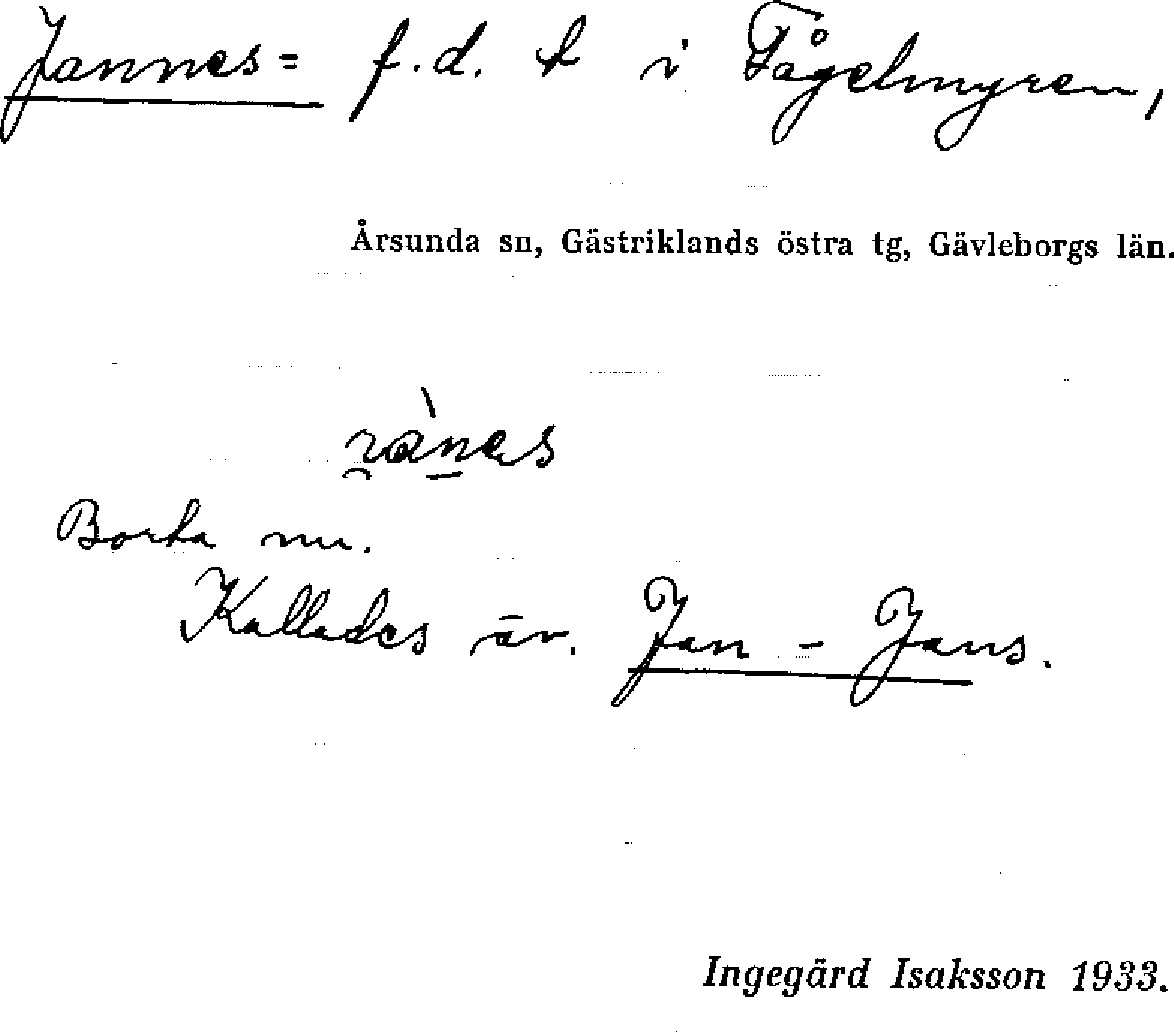 Jannes= f.d. t i Fågelmyren,
Årsunda sn, Gästriklands östra tg, Gävleborgs län.
Borta nu.
Kallades äv. Jan-Jans.
Ingegärd Isaksson 1933.